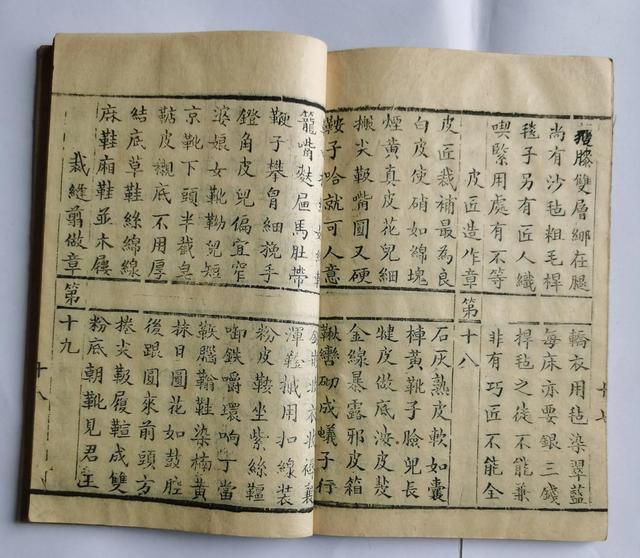 膝雙層綁在腿 轎衣用毡染翠藍
尚有沙毡粗毛桿 每床亦要銀三錢
毯子另有匠人織 捍毡之徒不能兼
喫緊用處有不等 非有巧匠不能全
皮匠造作章 第十八
皮匠裁補最為良 石灰熟皮軟如囊
白皮使硝如綿塊 樟黃靴子臉兜長
煙黃真皮花兒細 皮做底皮
搬尖靸嘴圓又硬 金線暴露邪皮箱
鞍子哈就可人意 鞦轡砌成蟻子行
籠嘴麩屉馬肚帶 渾用扣線裝
鞭子攀胷細挽手 粉皮鞍坐紫絲韁
鐙角皮兜偏宜窄 啣鉄嚼環响丁當
婆娘女靴靿兒短 腦鞋染楠黃
京靴下頭半截皂 抹日圓花如鼓腔
皮襯底不用厚 後跟圓來前頭方
結底草鞋絲綿線 捲尖靸履成雙
麻鞋廂鞋並木屐 粉底朝靴見君王
裁縫剪做章 第十九
十八